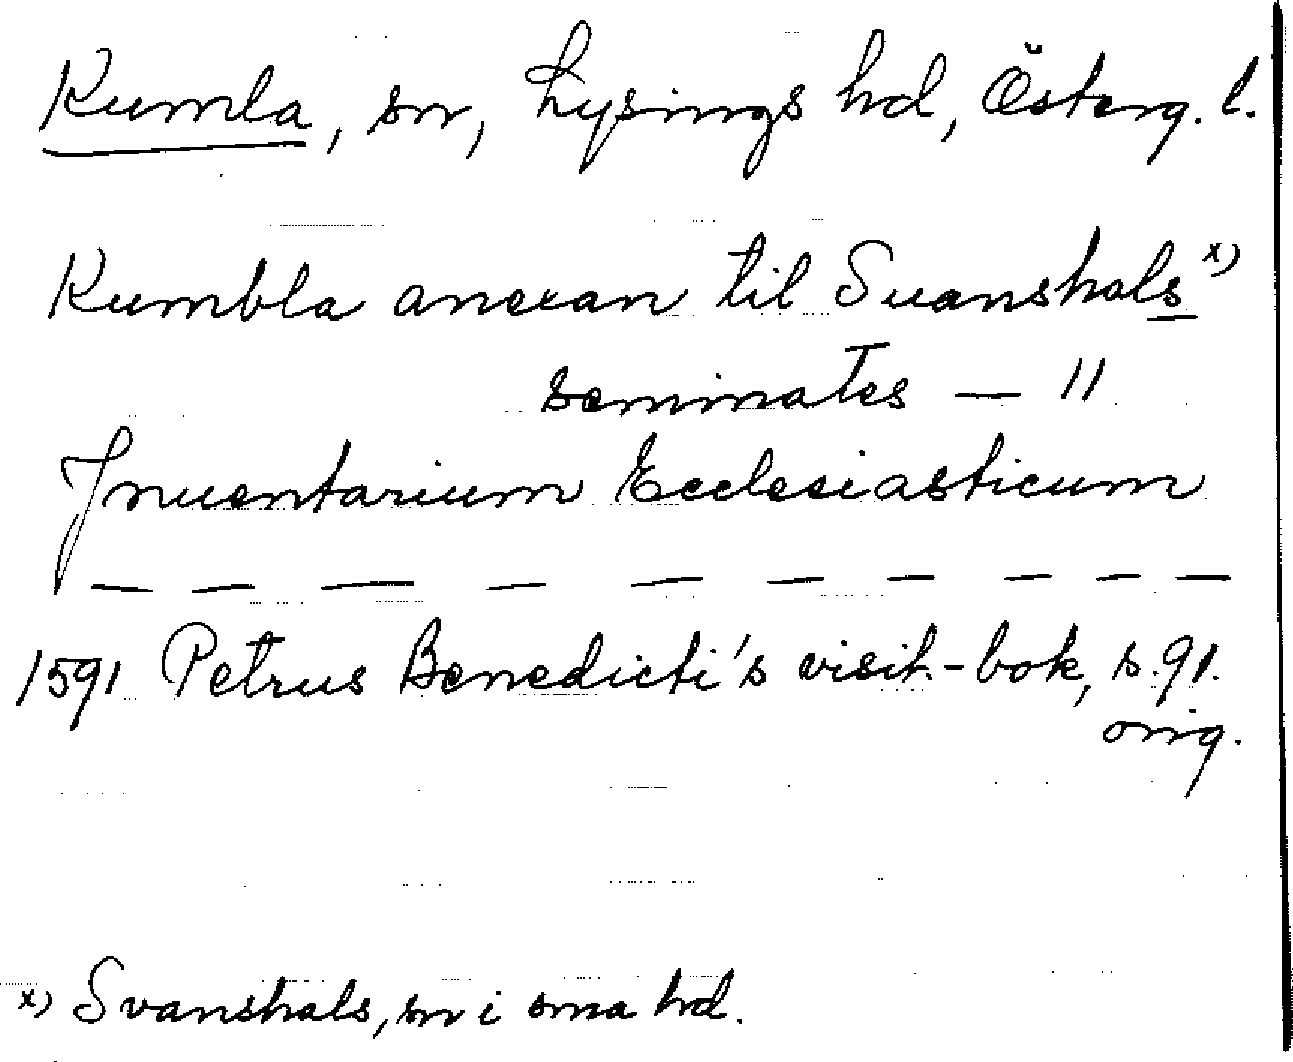 Kumla, sn, Lysings hd, Österg. l.
Kumbla anexan til Suanshals x)
seminates — 11
Inuentarium Ecclesiasticum
— — — — — — — — — —
1591 Petrus Benedicti's visit.-bok, s. 91.
orig.
x) Svanshals, sn i sma hd.